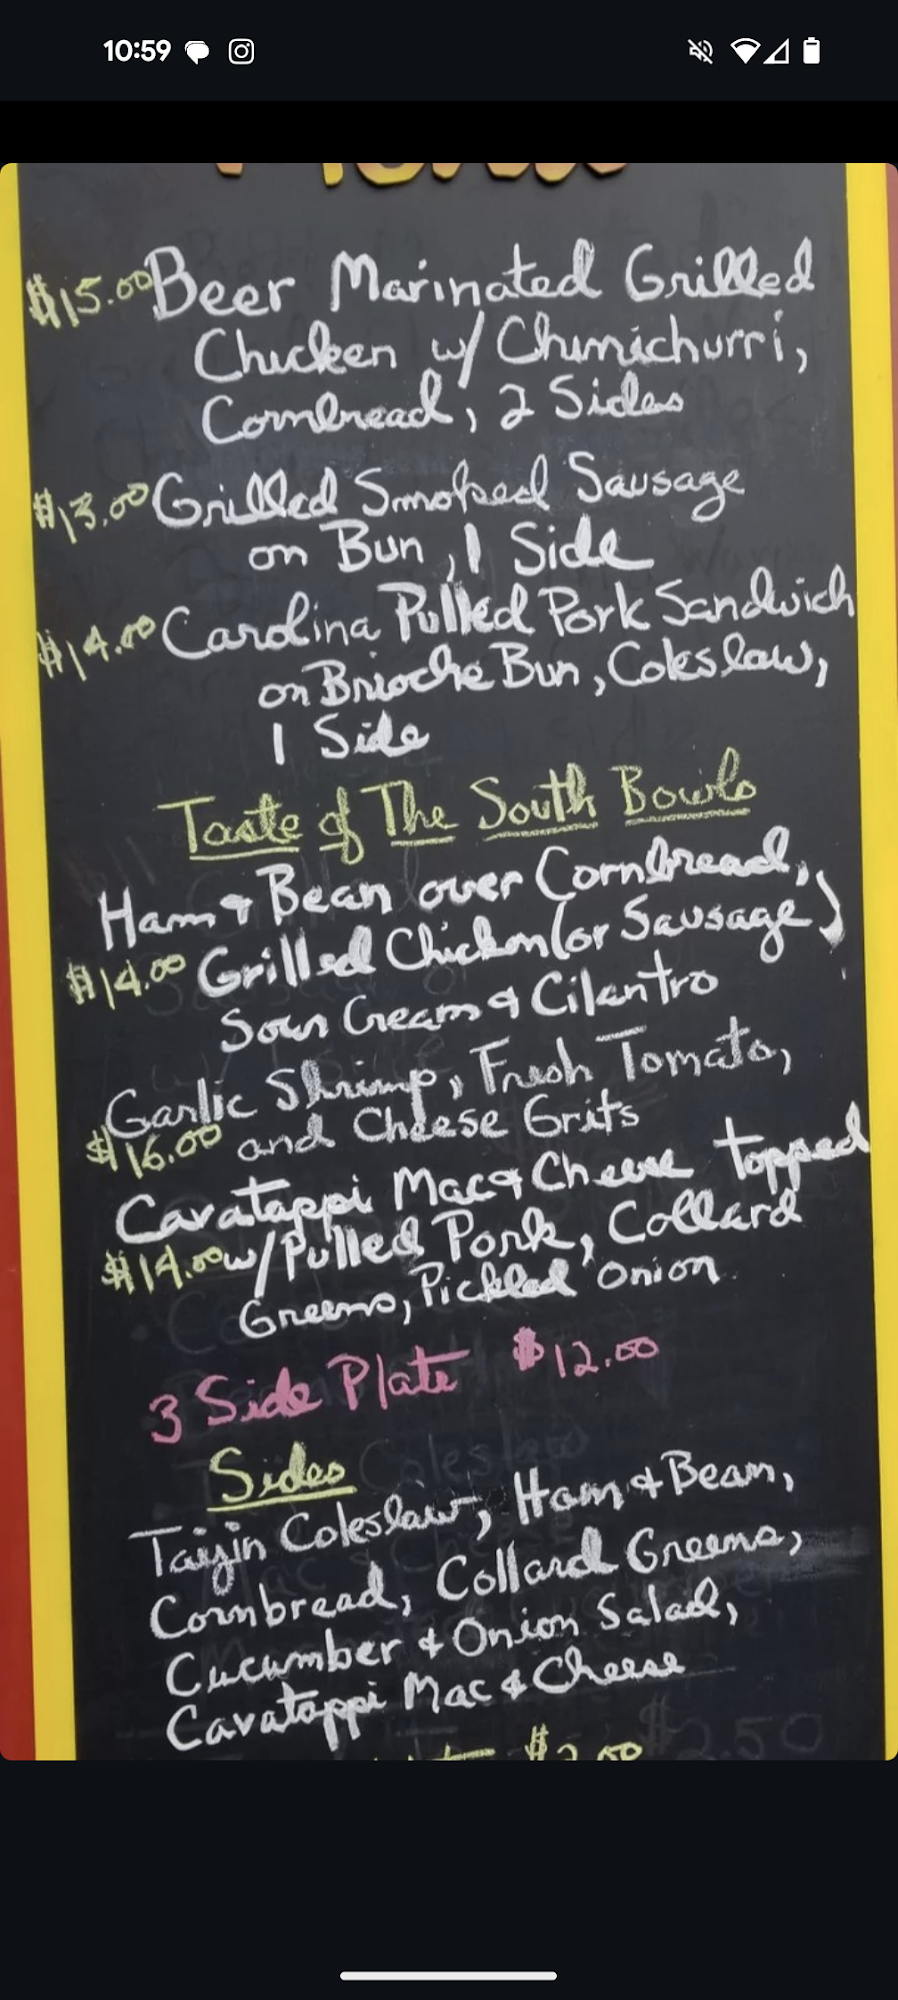 10:59
$15.00 Beer Marinated Grilled
Chicken w/ Chimichurri,
Cornbread, 2 Sides
$13.00 Grilled Smoked Sausage
on Bun, 1 Side
$14.00 Carolina Pulled Pork Sandwich
on Brioche Bun, Coleslaw,
1 Side
Taste of The South Bowls
Ham & Bean over Cornbread,
$14.00 Grilled Chicken (or Sausage)
Sour Cream & Cilantro
Garlic Shrimp, Fresh Tomato,
$16.00 and Cheese Grits
Cavatappi Mac & Cheese topped
$14.00 w/ Pulled Pork, Collard
Greens, Pickled Onion
3 Side Plate $12.00
Sides
Taijin Coleslaw, Ham & Bean,
Cornbread, Collard Greens,
Cucumber & Onion Salad,
Cavatappi Mac & Cheese